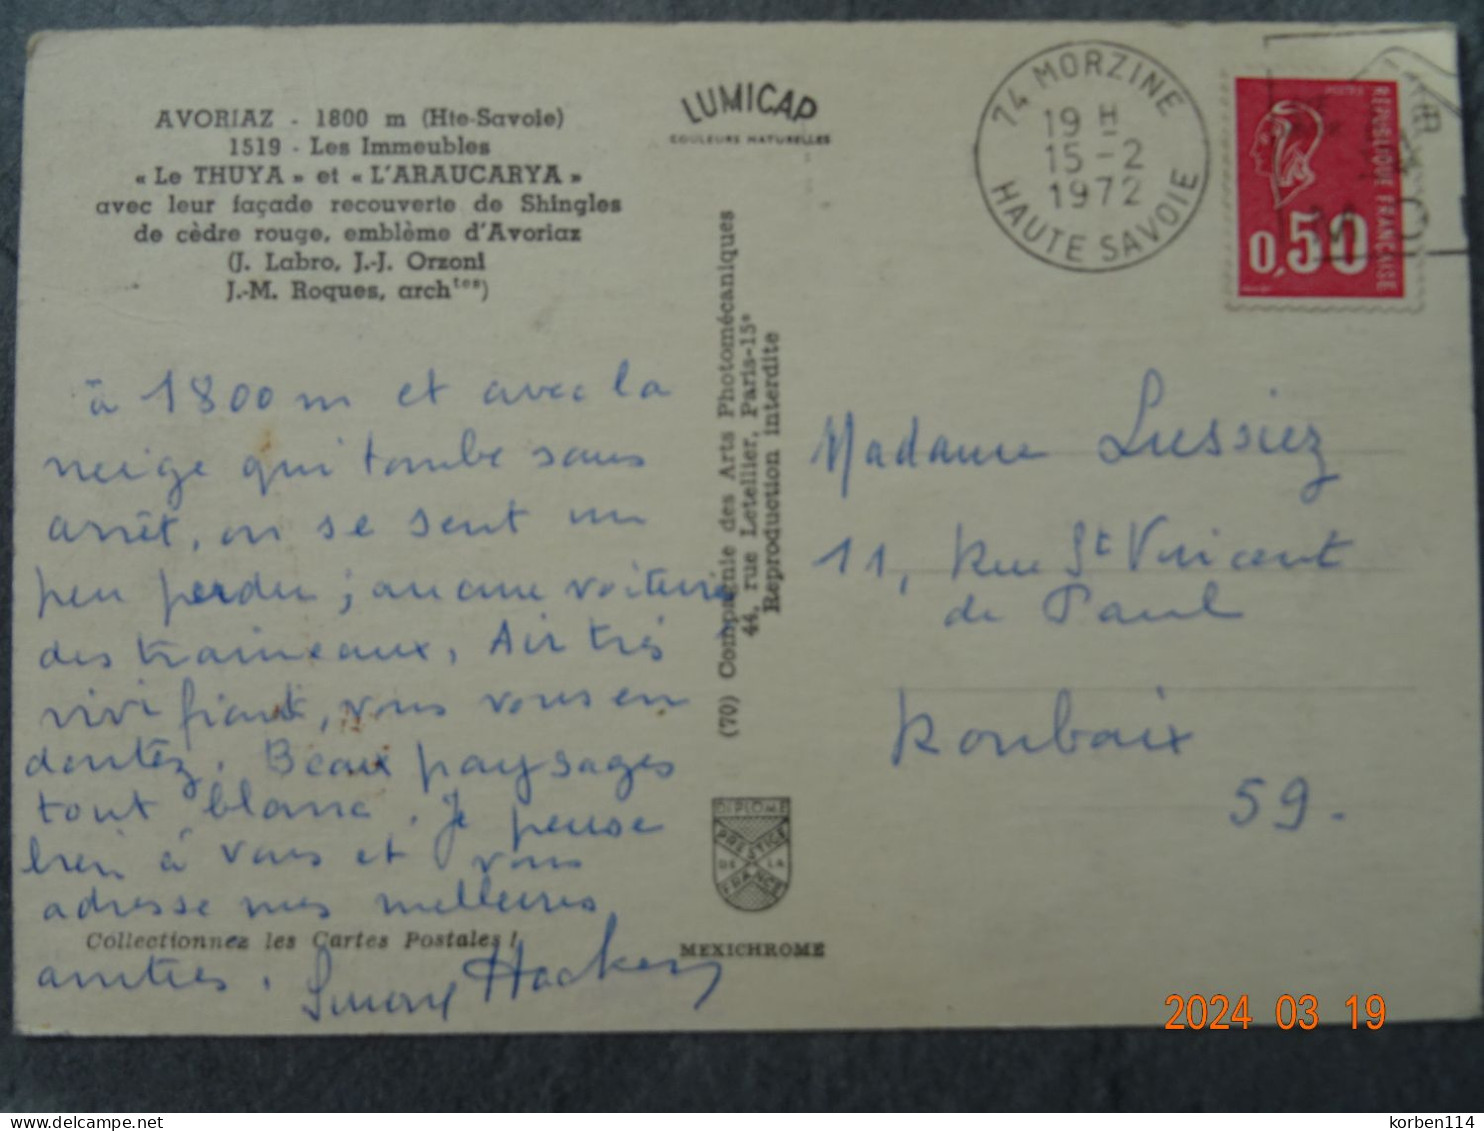 AVORIAZ - 1800 m (Hte-Savoie)
1519 - Les Immeubles
« Le THUYA » et « L'ARAUCARYA »
avec leur façade recouverte de Shingles
de cèdre rouge, emblème d'Avoriaz
(J. Labro, J.-J. Orzoni
J.-M. Roques, archtes)
à 1800 m et avec la
neige qui tombe sans
arrêt, on se sent un
peu perdu ; aucune voiture
des traineaux, Air très
vivifiant, vous vous en
doutez. Beaux paysages
tout blanc. Je pense
bien à vous et vous
adresse mes meilleures
Collectionnez les Cartes Postales !
amitiés. Hackers
LUMICAP
COULEURS NATURELLES
(70) Compagnie des Arts Photomécaniques
44, rue Letellier, Paris-15e
Reproduction interdite
DIPLOME
PRESTIGE
DE LA
FRANCE
MEXICHROME
74 MORZINE
19 H
15-2
1972
HAUTE SAVOIE
POSTES
REPUBLIQUE FRANÇAISE
0,50
Madame Lussiez
11, Rue St Vincent
de Paul
Roubaix
59.
2024 03 19
korben114